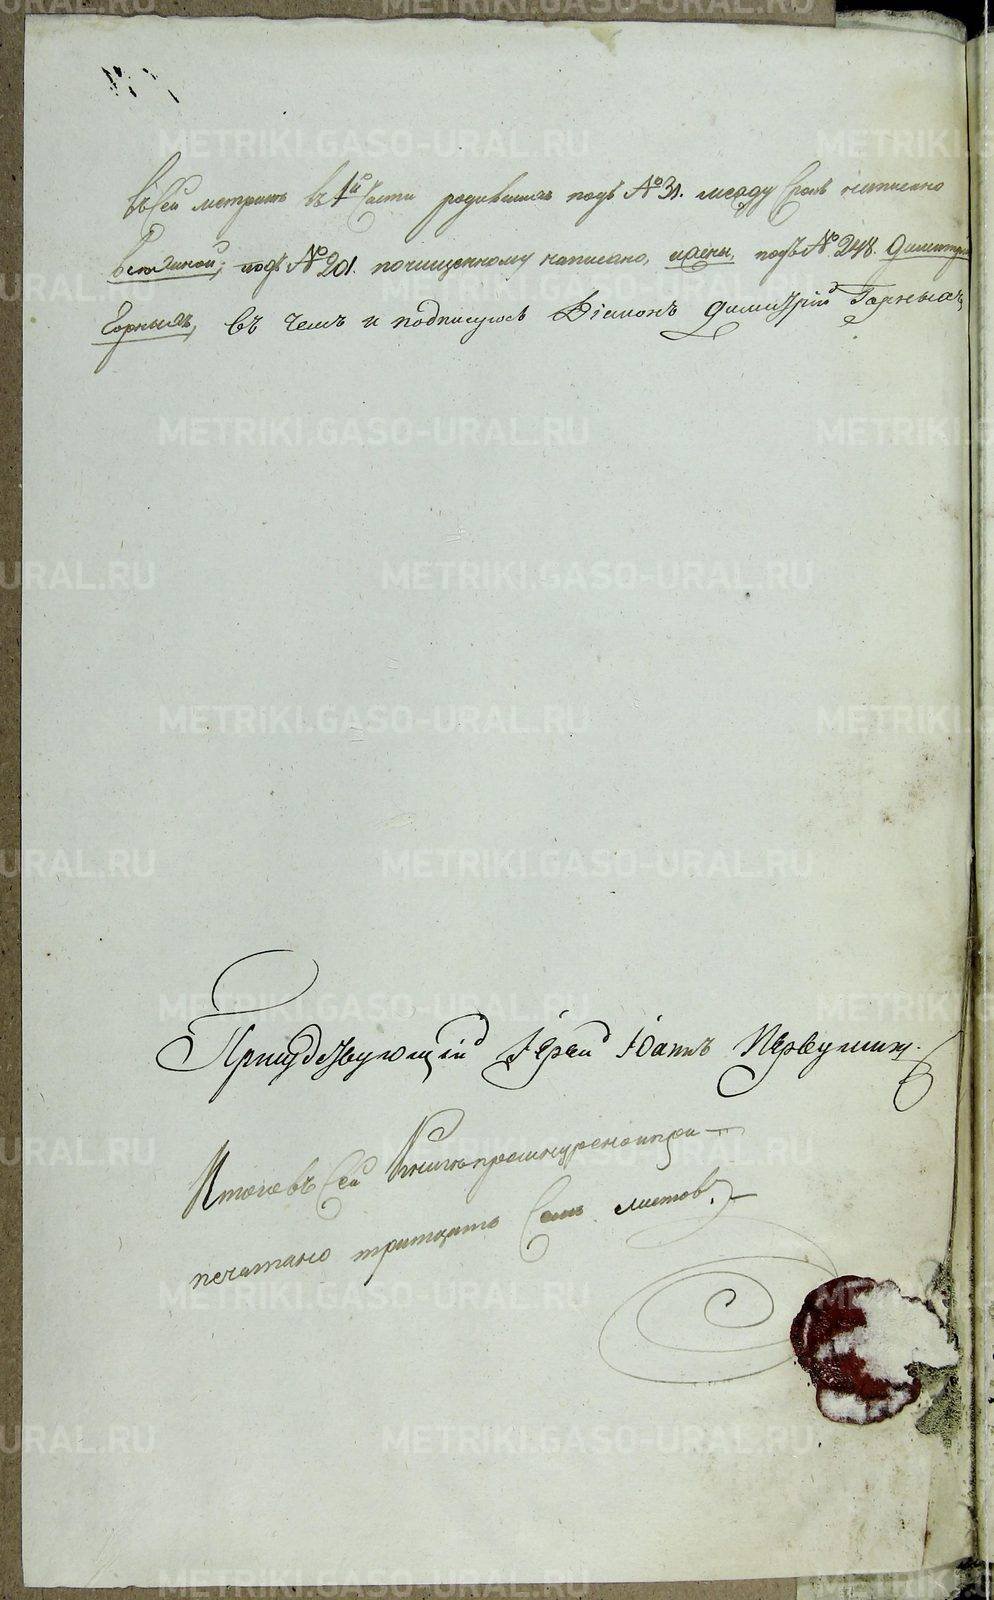 въ Сей метрикѣ въ 1й Части родившихся подъ № 31. между Строкъ написано
подъ № 201. почищенному написано, подъ № 248. Димитрій
Горныхъ, въ чемъ и подписуюсь Діаконъ Димитрій Горныхъ
Присудствующій Іерей Іоаннъ Первушинъ.
Итого въ Сей Книгѣ прошнурено и при-
печатано тритцать Семь листовъ.
METRIKI.GASO-URAL.RU